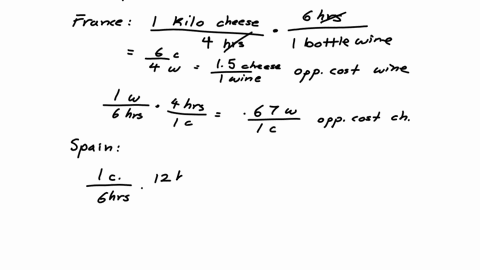 France: 1 Kilo cheese / 4 hrs · 6 hrs / 1 bottle wine
= 6 c / 4 w = 1.5 cheese / 1 wine opp. cost wine
1 w / 6 hrs · 4 hrs / 1 c = .67 w / 1 c opp. cost ch.
Spain:
1 c. / 6 hrs · 12 h